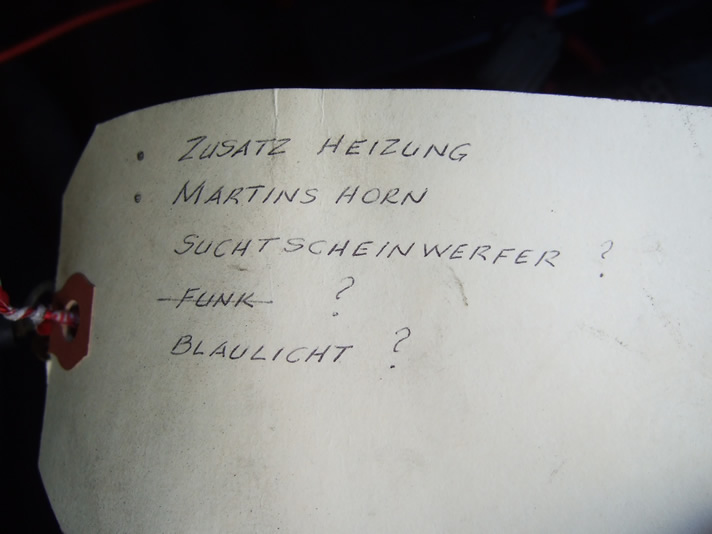 • ZUSATZ HEIZUNG
• MARTINS HORN
SUCHTSCHEINWERFER ?
FUNK ?
BLAULICHT ?